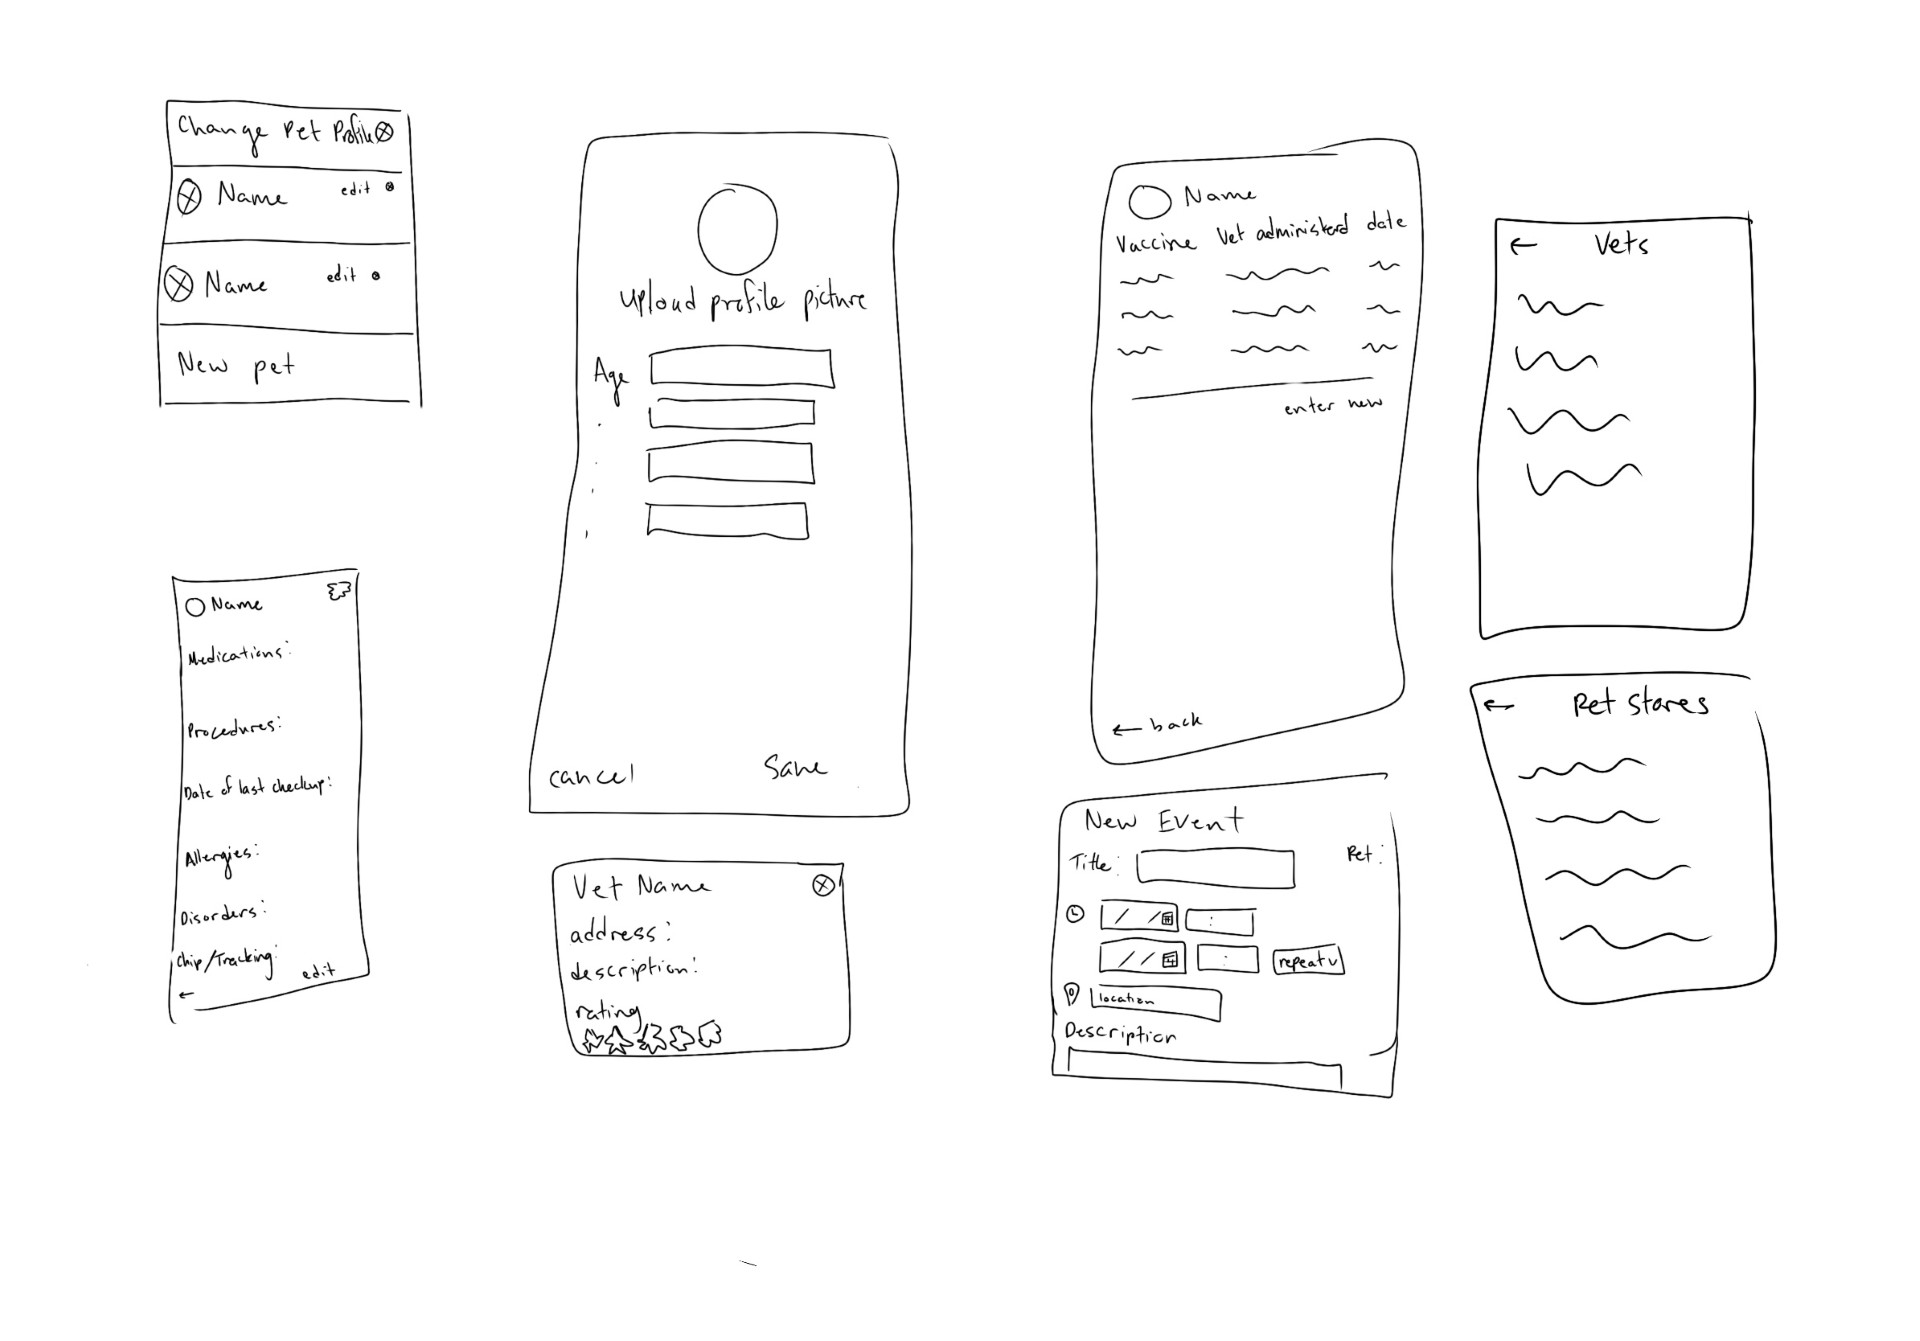 Change Pet Profile
Name edit
Name edit
New pet
Name
Medications:
Procedures:
Date of last checkup:
Allergies:
Disorders:
Chip/Tracking:
edit
←
upload profile picture
Age
cancel Save
Vet Name
address:
description:
rating
Name
Vaccine Vet administerd date
enter new
← back
New Event
Title: Pet:
/ / :
/ / : repeat v
location
Description
← Vets
← Pet Stores